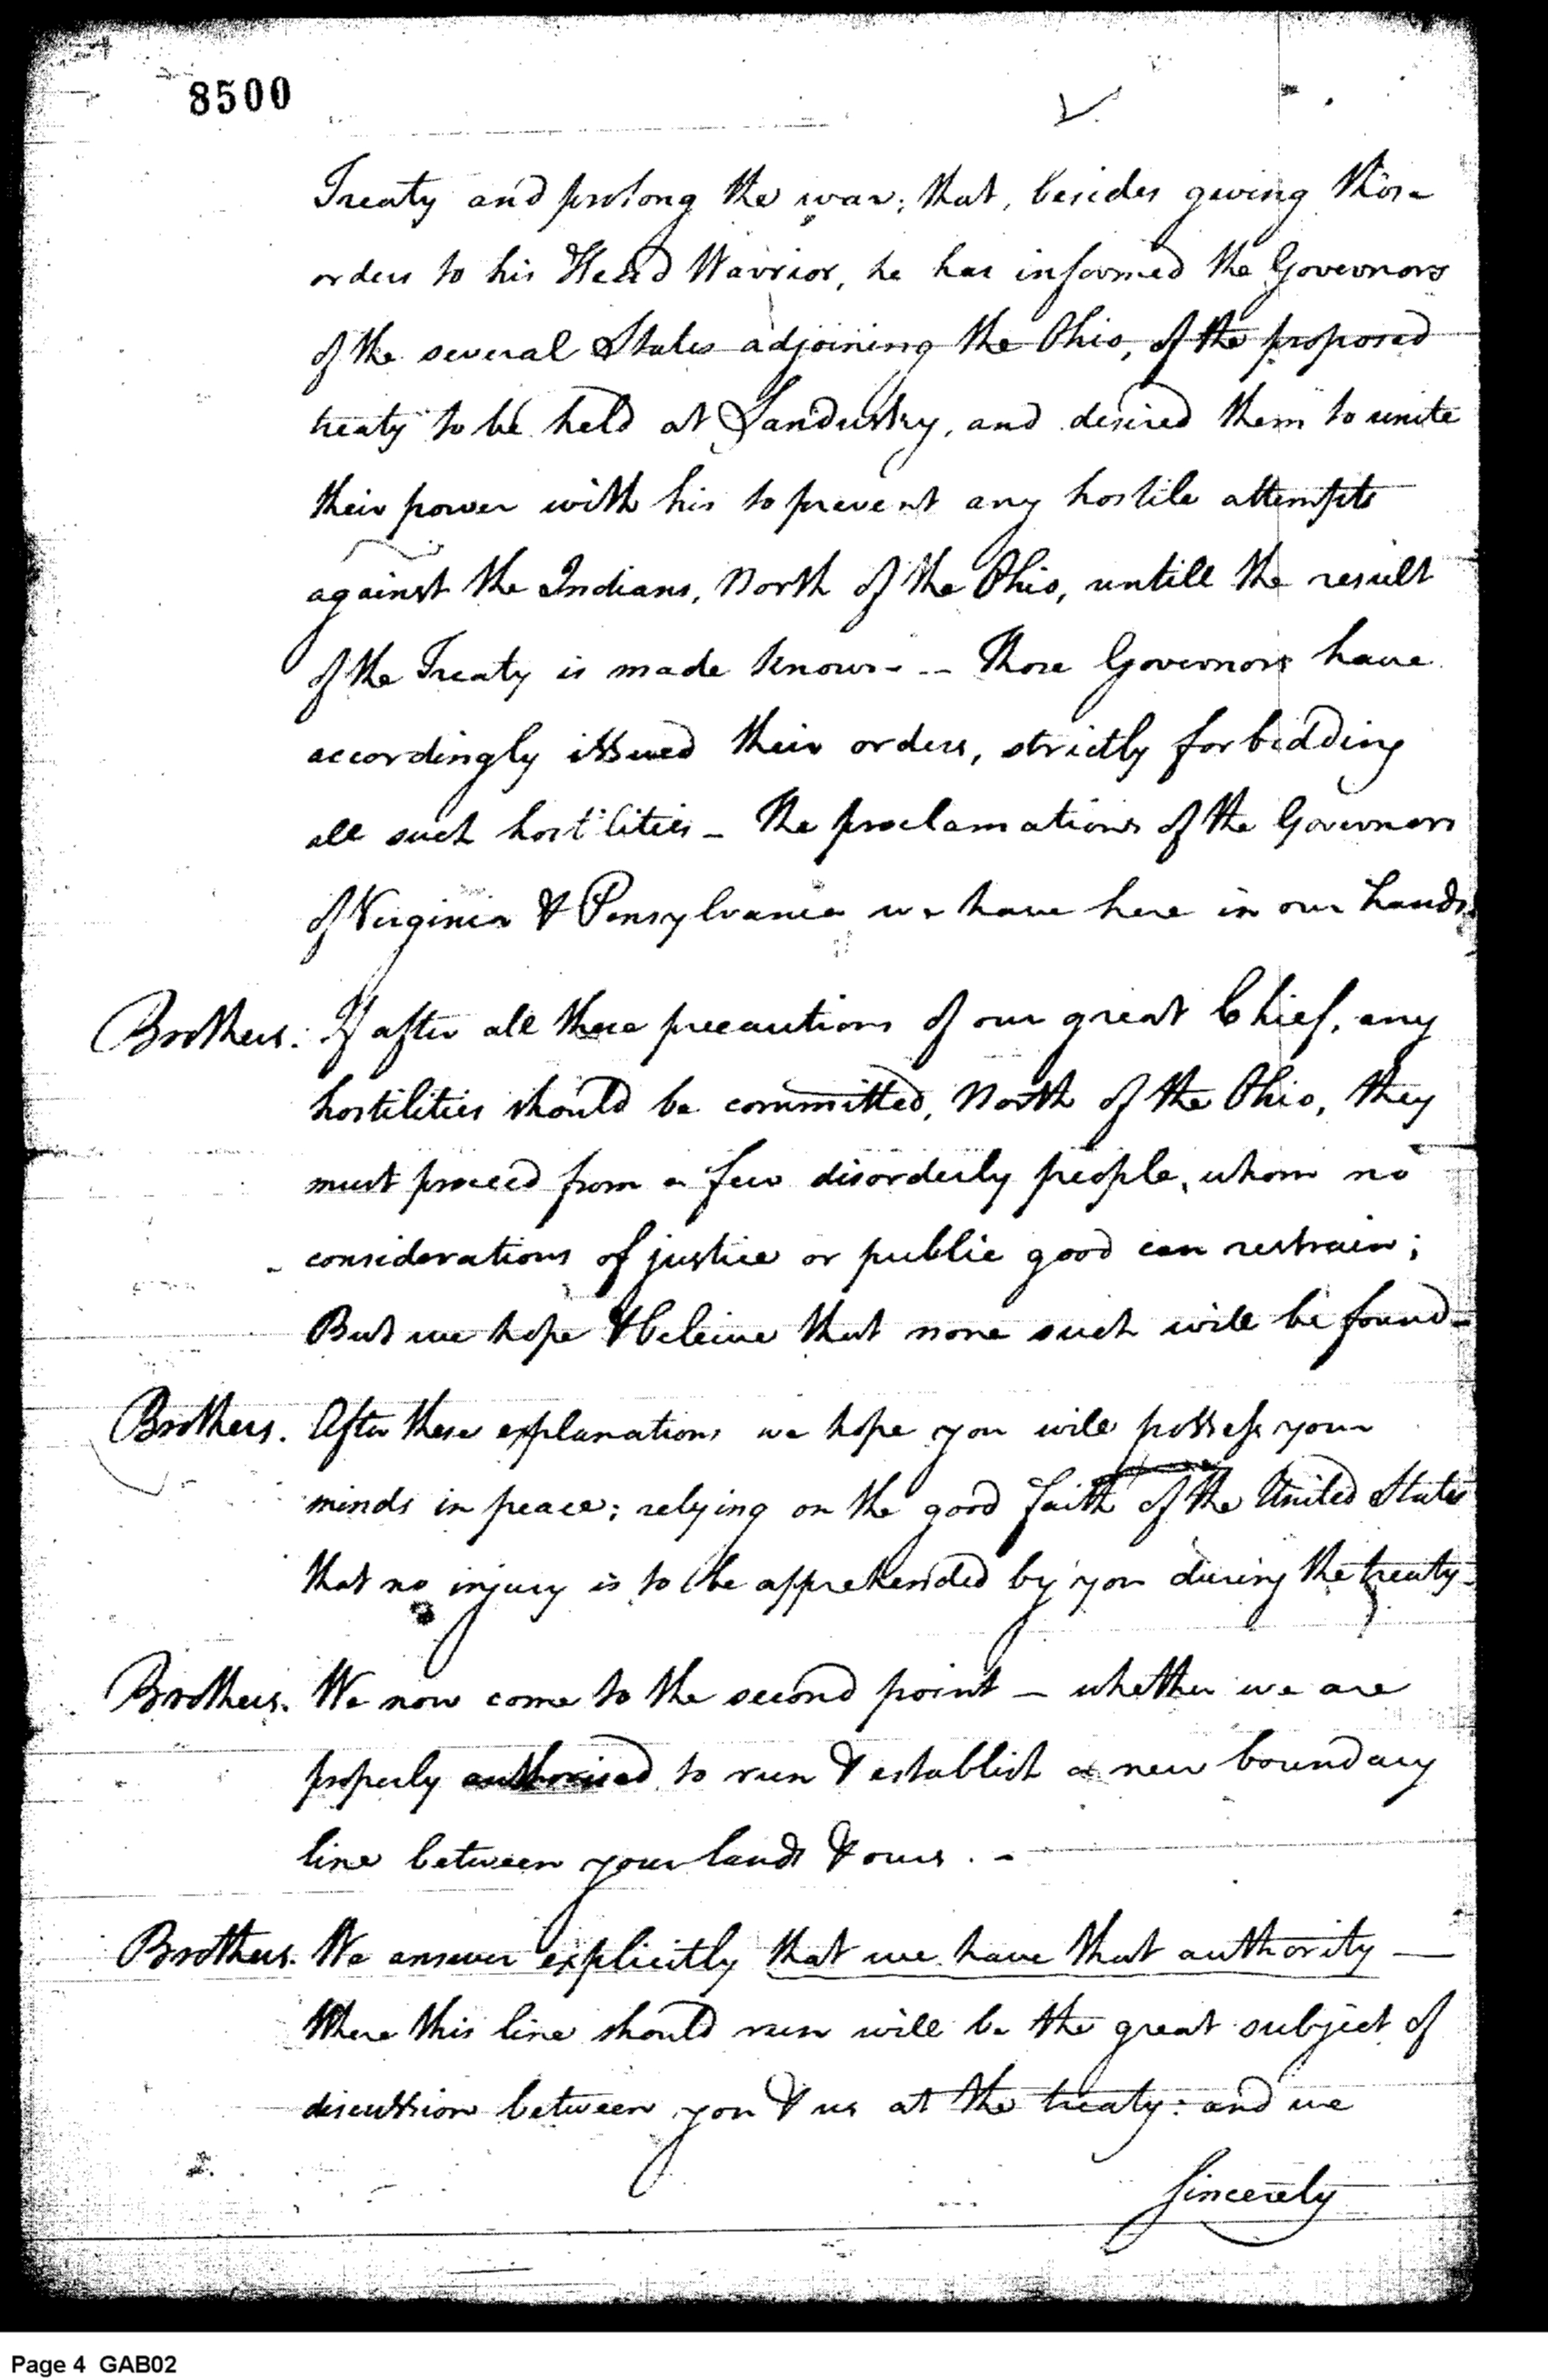 8500
Treaty and prolong the war; that, besides giving those
orders to his Head Warrior, he has informed the Governors
of the several States adjoining the Ohio, of the proposed
treaty to be held at Sandusky, and desired them to unite
their power with his to prevent any hostile attempts
against the Indians, North of the Ohio, untill the result
of the Treaty is made known -- Those Governors have
accordingly issued their orders, strictly forbidding
all such hostilities - The proclamations of the Governors
of Virginia & Pensylvania we have here in our hands.
Brothers. If after all these precautions of our great Chief, any
hostilities should be committed, North of the Ohio, they
must proceed from a few disorderly people, whom no
considerations of justice or public good can restrain;
But we hope & beleive that none such will be found -
Brothers. After these explanations we hope you will possess your
minds in peace; relying on the good faith of the United States
that no injury is to be apprehended by you during the treaty -
Brothers. We now come to the second point - whether we are
properly authorised to run & establish a new boundary
line between your lands & ours. -
Brothers. We answer explicitly that we have that authority —
Where this line should run will be the great subject of
discussion between you & us at the treaty: and we
Sincerely
Page 4 GAB02